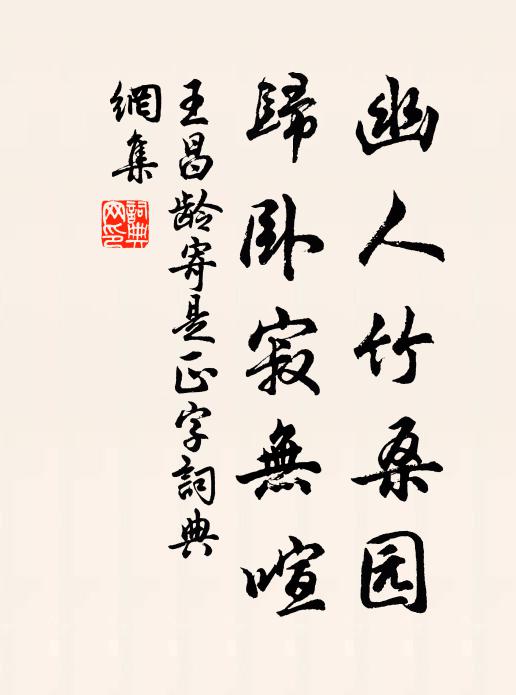 幽人竹桑园
歸卧寂無喧
王昌齡寄是正字詞典
網集
詞典
网印